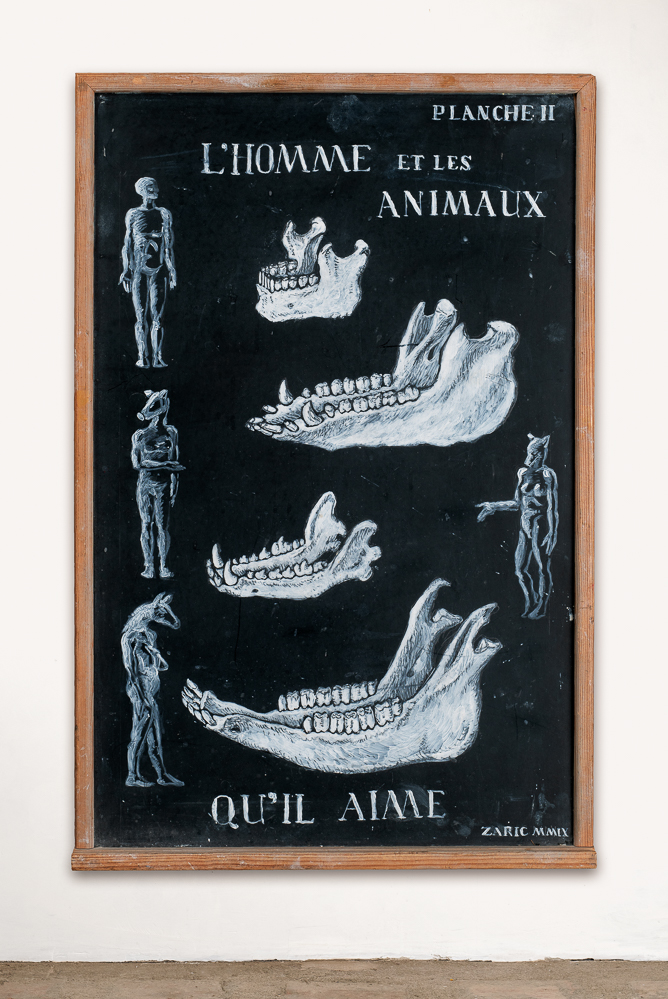 PLANCHE II
L'HOMME ET LES
ANIMAUX
QU'IL AIME
ZARIC MMIX